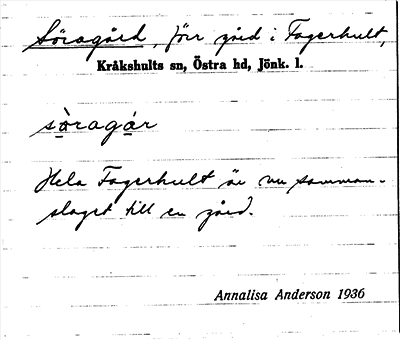 Söragård, förr gård i Fagerhult,
Kråkshults sn, Östra hd, Jönk. l.
sòragár
Hela Fagerhult är nu samman-
slaget till en gård.
Annalisa Anderson 1936